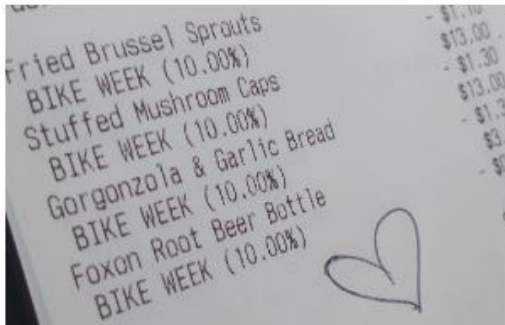 Fried Brussel Sprouts
BIKE WEEK (10.00%) - $1.10
Stuffed Mushroom Caps $13.00
BIKE WEEK (10.00%) - $1.30
Gorgonzola & Garlic Bread $13.00
BIKE WEEK (10.00%) - $1.3
Foxon Root Beer Bottle $3
BIKE WEEK (10.00%) - $0